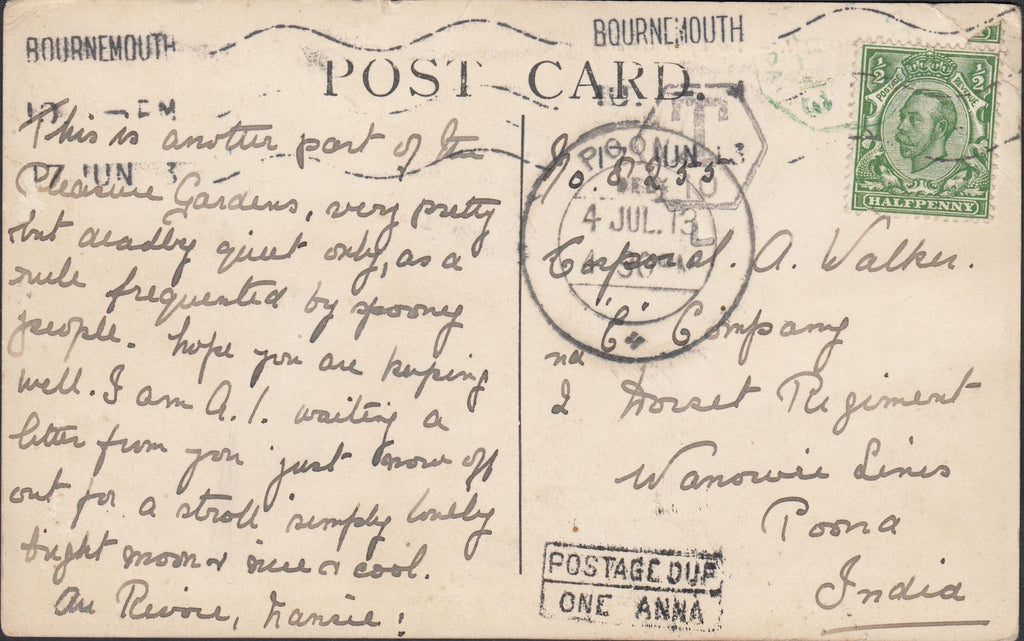 BOURNEMOUTH
BOURNEMOUTH
POST CARD.
17 JUN 13
17 JUN 13
T
10
½ ½
POSTAGE REVENUE
HALFPENNY
4 JUL.13
This is another part of the
Pleasure Gardens, very pretty
but deadly quiet only, as a
rule frequented by spooney
people. hope you are keeping
well. I am A.1. waiting a
letter from you just now off
out for a stroll simply lovely
bright moon & nice & cool.
Au Revoir, Nansie!
No. 8255
Corporal. A. Walker.
"C" Company
2nd Dorset Regiment
Wanowrie Lines
Poona
India
POSTAGE DUE
ONE ANNA